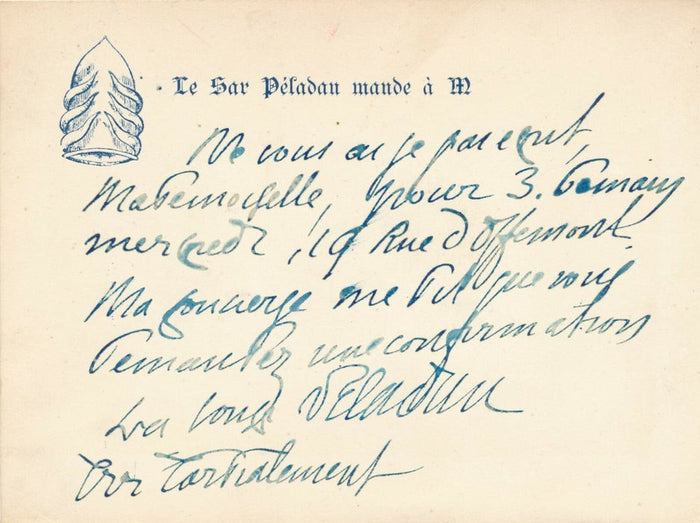 Le Sar Péladan mande à M
Ne vous ai je pas ecrit,
Mademoiselle, pour 3. demain
mercredi, 19 Rue d'Offémont.
Ma concierge me dit que vous
demandez une confirmation
La PELADAN
cordialement